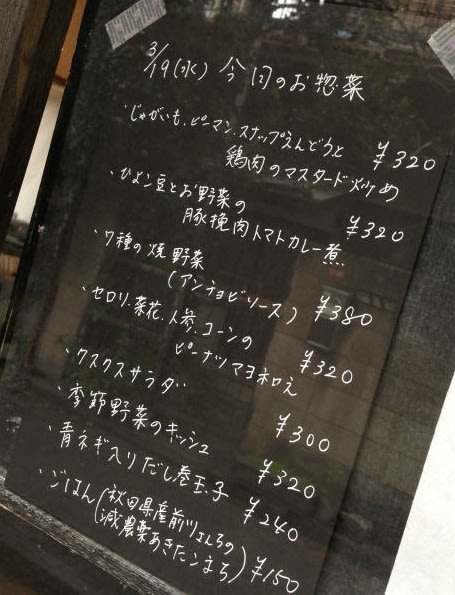 3/19(水) 今日のお惣菜
・じゃがいも、ピーマン、スナップえんどうと
鶏肉のマスタード炒め ¥320
・ひよこ豆とお野菜の
豚挽肉トマトカレー煮 ¥320
・7種の焼野菜
(アンチョビソース) ¥380
・セロリ、菜花、人参、コーンの
ピーナツマヨ和え ¥320
・クスクスサラダ ¥300
・季節野菜のキッシュ ¥320
・青ネギ入りだし巻玉子 ¥240
・ごはん(秋田県産前川さんちの
減農薬あきたこまち) ¥150